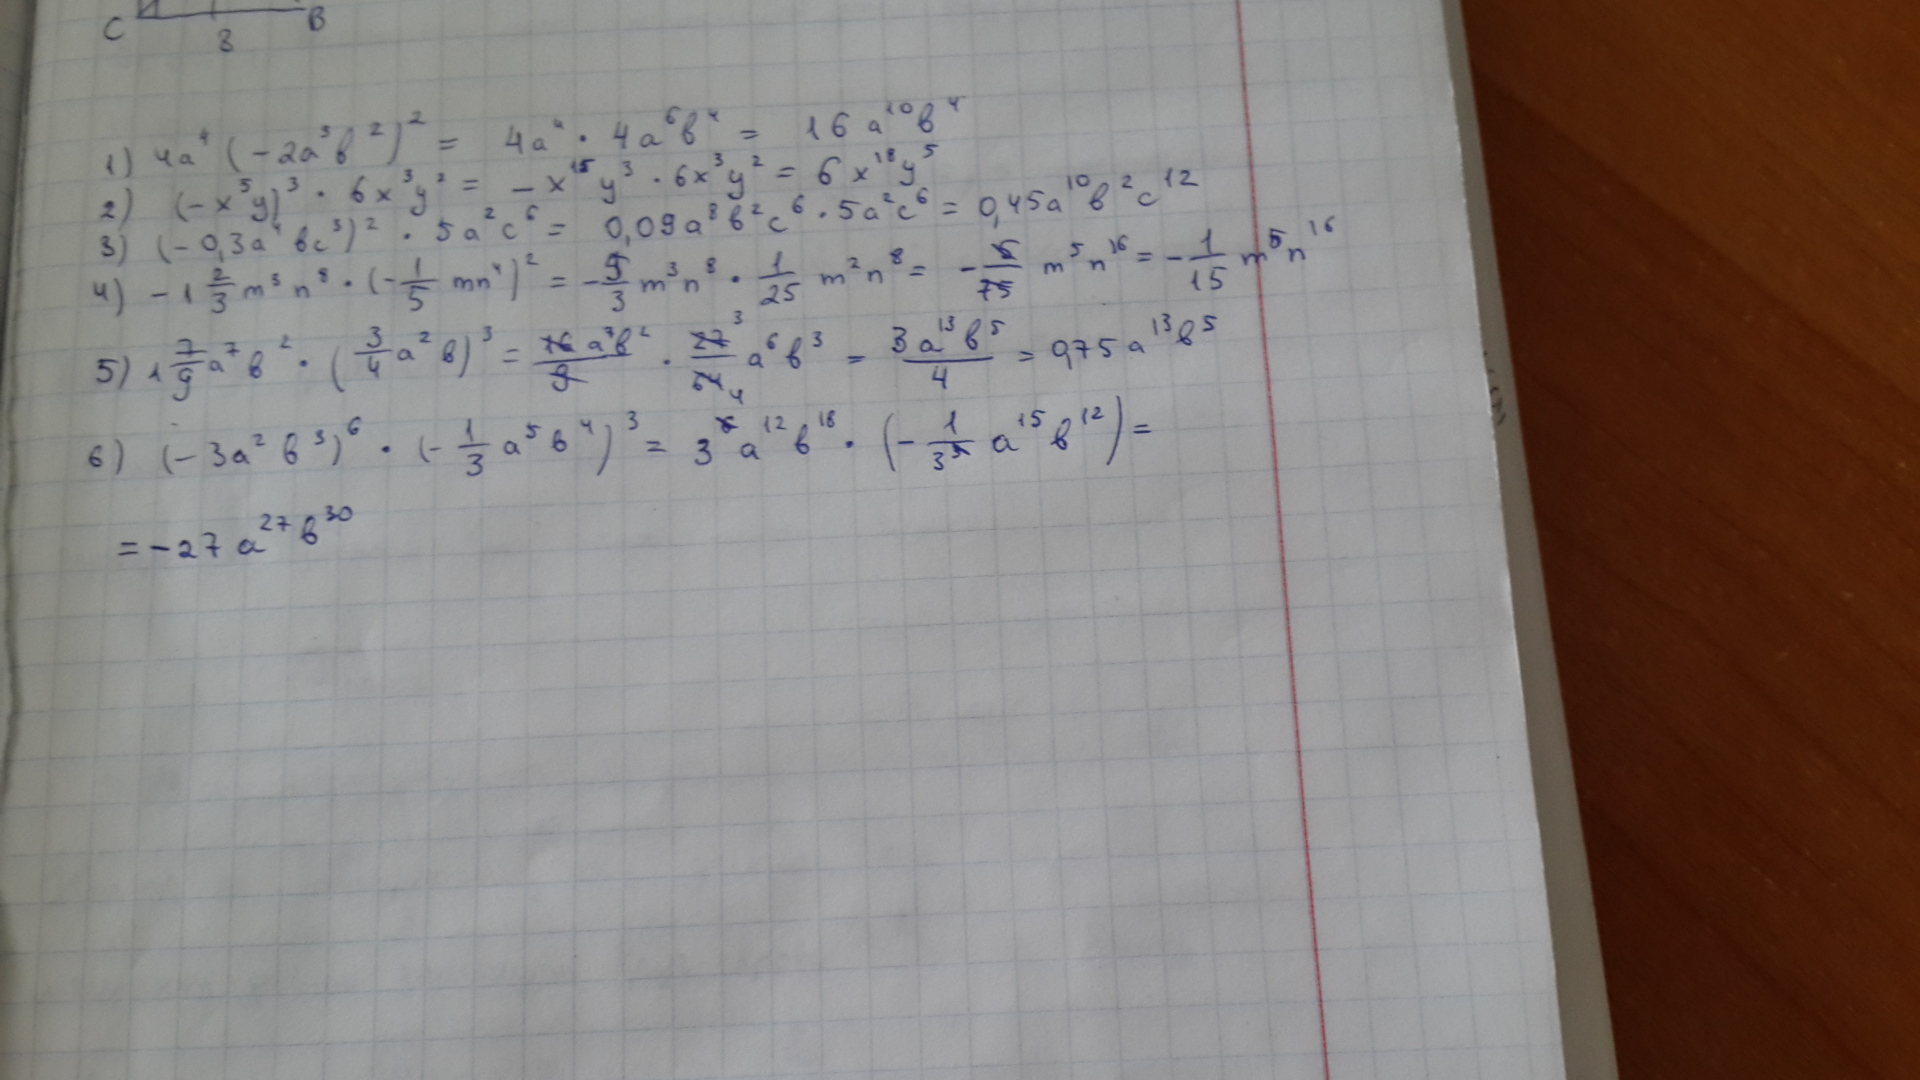 C B
8
1) 4a⁴(-2a³b²)² = 4a⁴ · 4a⁶b⁴ = 16a¹⁰b⁴
2) (-x⁵y)³ · 6x³y² = -x¹⁵y³ · 6x³y² = 6x¹⁸y⁵
3) (-0,3a⁴bc³)² · 5a²c⁶ = 0,09a⁸b²c⁶ · 5a²c⁶ = 0,45a¹⁰b²c¹²
4) -1 2/3 m³n⁸ · (-1/5 mn⁴)² = -5/3 m³n⁸ · 1/25 m²n⁸ = -5/75 m⁵n¹⁶ = -1/15 m⁵n¹⁶
5) 1 7/9 a⁷b² · (3/4 a²b)³ = 16a⁷b²/9 · 27/64 a⁶b³ = 3a¹³b⁵/4 = 0,75a¹³b⁵
6) (-3a²b³)⁶ · (-1/3 a⁵b⁴)³ = 3⁶a¹²b¹⁸ · (-1/3³ a¹⁵b¹²) =
= -27a²⁷b³⁰